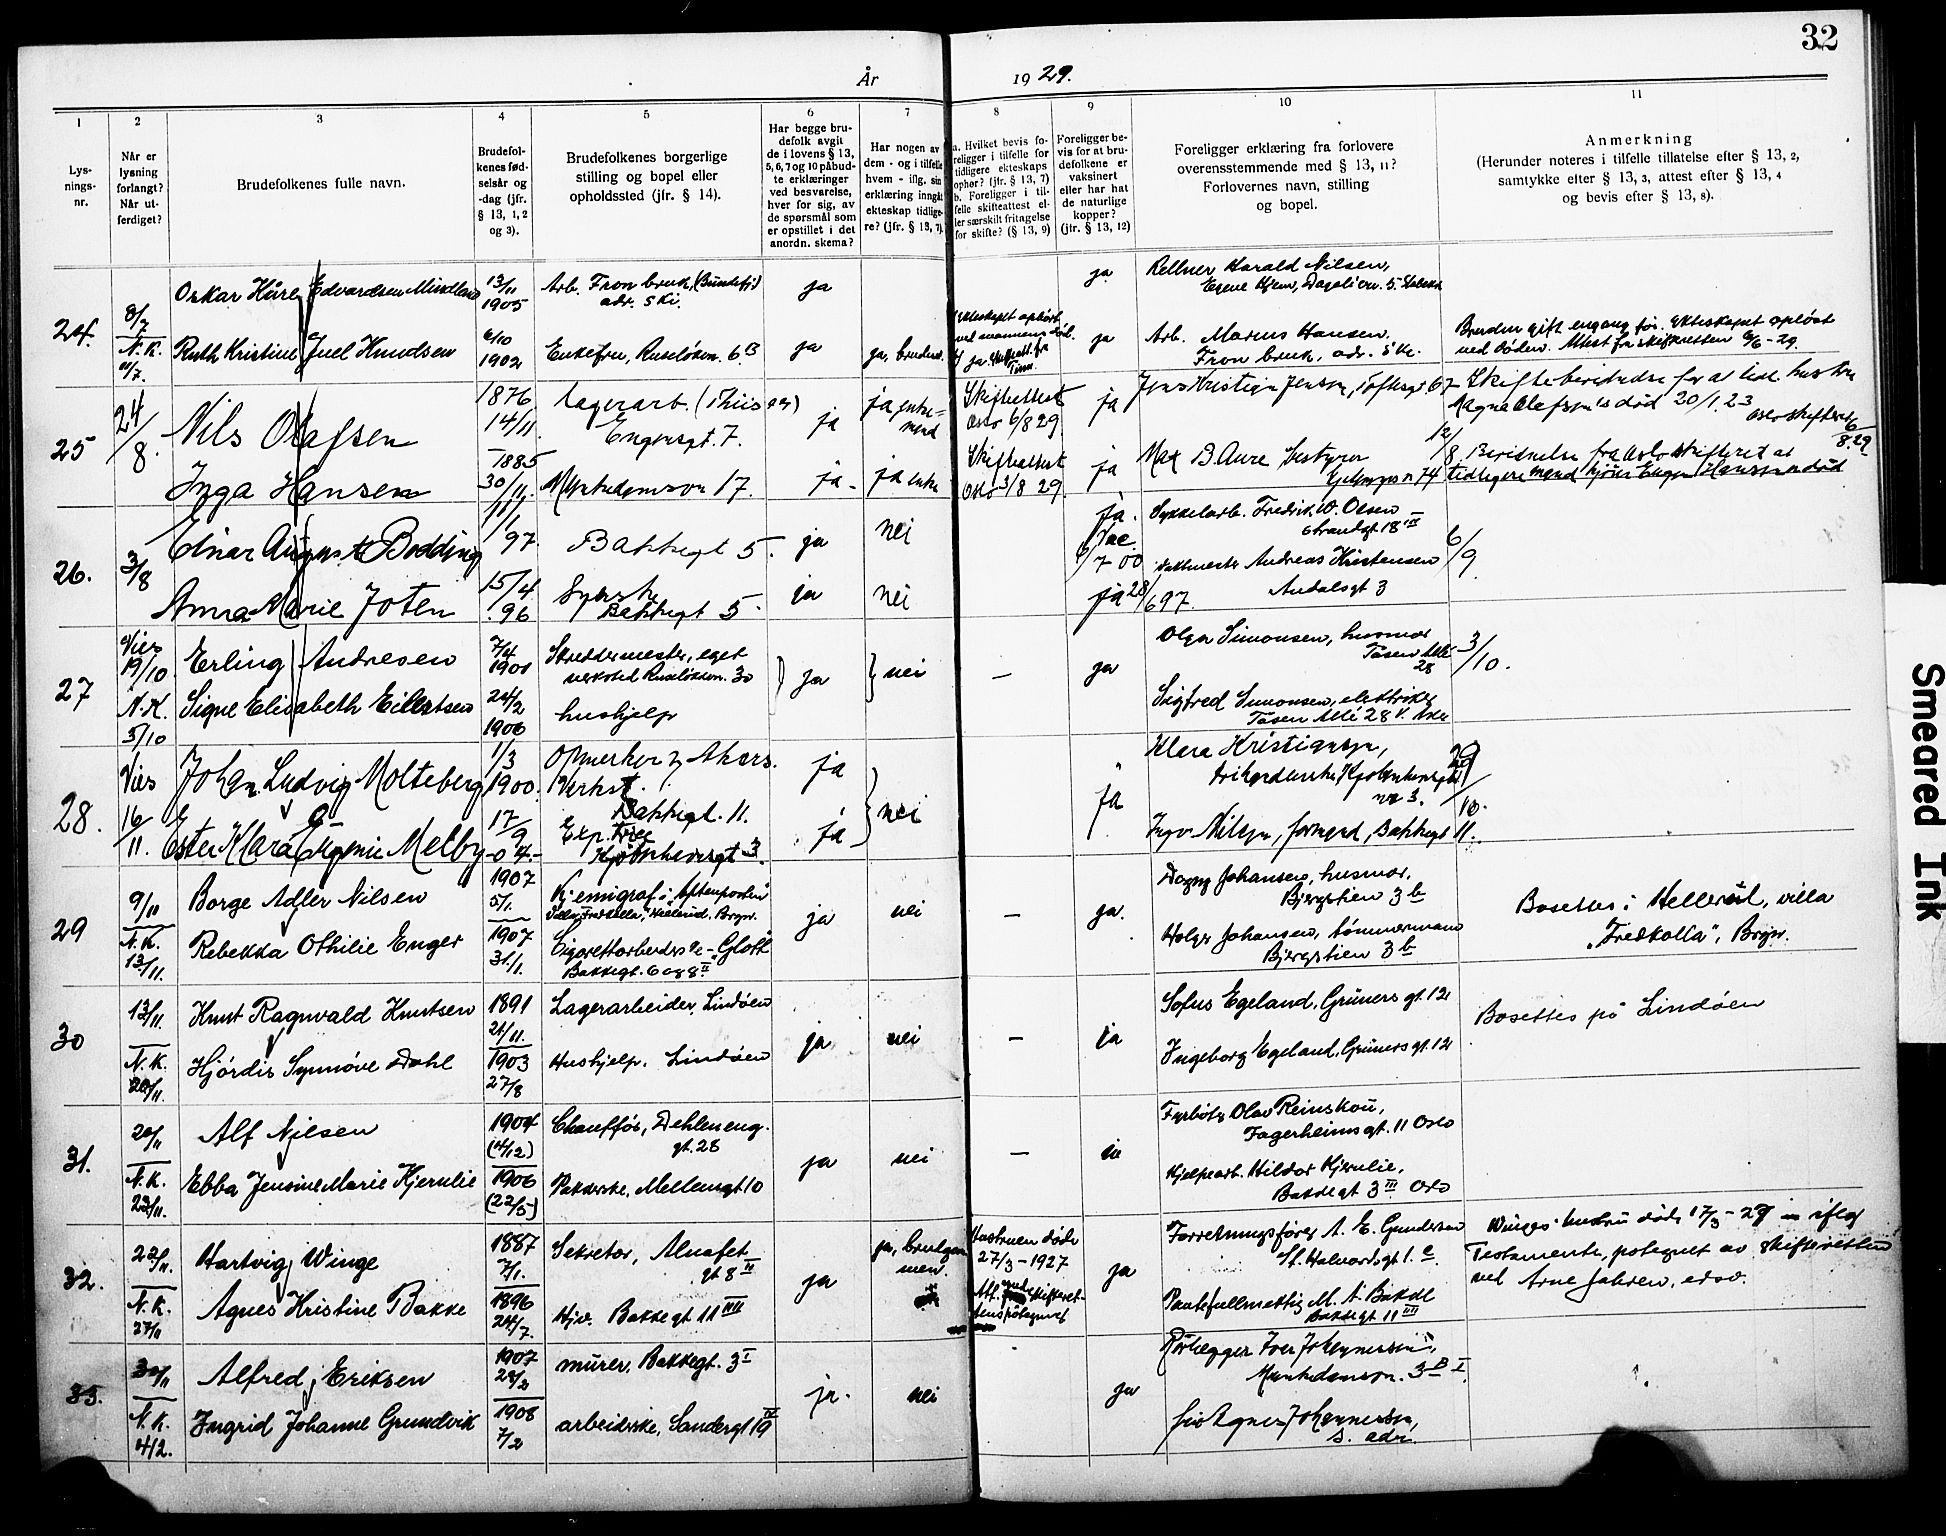 32
År 1929.
1
Lys-
nings-
nr.
2
Når er
lysning
forlangt?
Når ut-
ferdiget?
3
Brudefolkenes fulle navn.
4
Brudefol-
kenes fød-
selsår og
-dag (jfr.
§ 13, 1, 2
og 3).
5
Brudefolkenes borgerlige
stilling og bopel eller
opholdssted (jfr. § 14).
6
Har begge bru-
defolk avgit
de i lovens § 13,
5, 6, 7 og 10 påbud-
te erklæringer
ved besvarelse,
hver for sig, av
de spørsmål som
er opstillet i det
anordn. skema?
7
Har nogen av
dem - og i tilfelle
hvem - iflg. sin
erklæring inngått
ekteskap tidlige-
re? (jfr. § 13, 7)
8
a. Hvilket bevis fo-
religger i tilfelle for
tidligere ekteskaps
ophør? (jfr. § 13, 7)
b. Foreligger i til-
felle skifteattest el-
ler særskilt fritagelse
for skifte? (§ 13, 9)
9
Foreligger be-
vis for at bru-
defolkene er
vaksinert
eller har hat
de naturlige
kopper?
(jfr. § 13, 12)
10
Foreligger erklæring fra forlovere
overensstemmende med § 13, 11?
Forlovernes navn, stilling
og bopel.
11
Anmerkning
(Herunder noteres i tilfelle tillatelse efter § 13, 2,
samtykke efter § 13, 3, attest efter § 13, 4
og bevis efter § 13, 8).
24.
8/7
N.K.
11/7.
Oskar Kåre Edvardsen
13/11
1905
Arb. Fron bruk,
adr. Ski.
ja
ja
Harald Nilsen,
Ruth Kristine Juel Knudsen
6/10
1902
Enkefru, Ruseløkvn. 6 B
ja
ja, bruden.
Ekteskapet opløst
ved mannens død.
ja
Arb. Marius Hansen,
Fron bruk, adr. Ski.
Bruden gift engang før. Ekteskapet opløst
ved døden. Attest fra skifteretten 6/6-29.
25
24/8.
Nils Olafsen
1876
14/11.
Lagerarb.
Engensgt. 7.
ja
ja, enke-
mand
Skifteattest
Oslo 6/8 29
ja
Jens Kristian Jensen, Toftesgt. 67
død 20/1.23
Inga Hansen
1885
30/11.
Munkedamsvn 17.
ja.
ja enke
Skifteattest
Oslo 3/8 29.
ja
Max B. Aure bestyrer
74
12/8
fra Oslo skifterett at
tidligere mand
Hanssen død
26.
3/8
Einar August Bodding
97.
Bakkegt 5.
ja
nei
ja.
Sykkelarb. Fredrik W. Olsen
Strandgt 18 III
6/9
Anna Marie Joten
15/4
96
Syerske
Bakkegt 5.
ja
nei
ja 28/6 97.
Andreas Kristensen
27
Vies
19/10
N.K.
5/10
Erling Andresen
7/4
1901
Skreddermester, eget
verksted Ruseløkvn. 30
ja
nei
–
ja
Olga Simonsen, husmor
Tåsen Allé
28
3/10.
Signe Elisabeth Eilertsen
24/2
1906
hushjelp
Sigfred Simonsen, elektriker
Tåsen Allé 28 V. Aker
28.
Vies
16/11.
Johan Ludvig Molteberg
1/3
1900.
Opmerker v Akers.
Verkst.
Bakkegt. 11.
ja
nei
ja
Klara Kristiansen,
nr 3.
29/10.
Ester Klara Eugenie Melby
17/9
-04-
Exp. Frie
3.
ja
Ingv. Nilsen, formand, Bakkegt 11.
29
9/11
N.K.
13/11.
Borge Adler Nilsen
1907
5/1.
Kjemigraf i „Aftenposten"
ja
nei
–
ja.
Dagny Johansen, husmor,
Bjergstien 3 b
Bosettes i Hellerud, villa
„Fredkolla", Bryn.
Rebekka Othilie Enger
1907
31/1.
Cigarettarbeiderske - „Glott"
Bakkegt. 6 og 8 II
Holger Johansen, tømmermann
Bjergstien 3 b
30
13/11.
N.K.
20/11.
Knut Ragnvald Knutsen
1891
21/11.
Lagerarbeider, Lindøen
ja
nei
–
ja
Sofus Egeland, Grüners gt. 12
Bosettes på Lindøen
Hjørdis Synnøve Dahl
1903
27/8
Hushjelp. Lindøen
Ingeborg Egeland, Grüners gt. 12
31.
20/11
N.K.
23/11.
Alf Nilsen
1904
(4/12)
Chauffør, Dehleneng.
gt. 28
ja
nei
–
ja
Fyrbøter Olav Reinskou,
Fagerheimsgt. 11 Oslo
Ebba Jensine Marie Hjernlie
1906
(22/5)
Pakkerske, Mellemgt 10
Hjelpearb. Hildor Hjernlie,
Bakkegt 3 III Oslo
32.
22/11.
N.K.
27/11
Hartvig Winge
1887
7/1.
Sekretær, Alnafet
gt 8 II
ja
ja, brudgom
men.
Hustruen døde
27/3-1927
ja
Forretningsfører A. E. Gundersen
St. Halvardsgt 1. c.
Winges hustru døde 17/3-27 iflg
Testamente, påtegnet av skifteretten
ved Arne Jahren, edsv.
Agnes Kristine Bakke
1896
24/7.
Hjv. Bakkegt 11 III
Pantefullmektig M. A. Bakke
Bakkegt 11 III
33.
30/11
N.K.
4/12.
Alfred Eriksen
1907
28/2
murer. Bakkegt. 3 I
ja.
nei
ja
Rørlegger Iver Johannessen,
Munkedamsvn. 3 B I.
Ingrid Johanne Grundvik
1908
7/2
arbeiderske, Sandergt 19 IV
fru Agnes Johannessen,
s. adr.
Smeared Ink